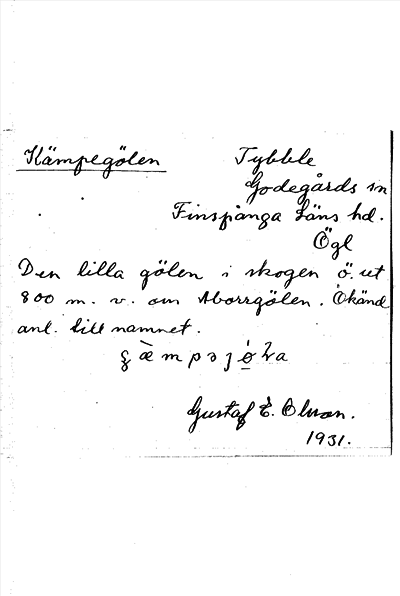 Kämpegölen
Tybble
Godegårds sn
Finspånga läns hd.
Ögl
Den lilla gölen i skogen ö. ut
800 m. v. om Aborrgölen. Okänd
anl. till namnet.
Gustaf E. Olsson.
1931.